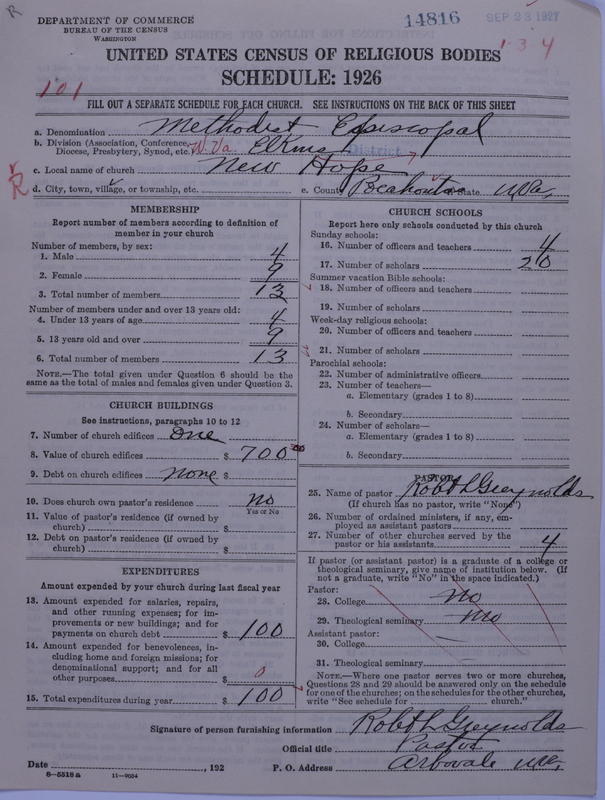 R
DEPARTMENT OF COMMERCE
BUREAU OF THE CENSUS
WASHINGTON
14816
SEP 23 1927
UNITED STATES CENSUS OF RELIGIOUS BODIES
1-3-4
SCHEDULE: 1926
101
FILL OUT A SEPARATE SCHEDULE FOR EACH CHURCH. SEE INSTRUCTIONS ON THE BACK OF THIS SHEET
a. Denomination Methodist Episcopal
b. Division (Association, Conference, Diocese, Presbytery, Synod, etc.) W. Va. Elkins District
c. Local name of church New Hope
R d. City, town, village, or township, etc. e. County Pocahontas f. State W Va,
MEMBERSHIP
Report number of members according to definition of
member in your church
Number of members, by sex:
1. Male 4
2. Female 9
3. Total number of members 13
Number of members under and over 13 years old:
4. Under 13 years of age 4
5. 13 years old and over 9
6. Total number of members 13
NOTE.—The total given under Question 6 should be
same as the total of males and females given under Question 3.
CHURCH BUILDINGS
See instructions, paragraphs 10 to 12
7. Number of church edifices One
8. Value of church edifices $ 700 00
9. Debt on church edifices None $
10. Does church own pastor's residence No
Yes or No
11. Value of pastor's residence (if owned by
church) $
12. Debt on pastor's residence (if owned by
church) $
EXPENDITURES
Amount expended by your church during last fiscal year
13. Amount expended for salaries, repairs,
and other running expenses; for im-
provements or new buildings; and for
payments on church debt $ 100
14. Amount expended for benevolences, in-
cluding home and foreign missions; for
denominational support; and for all
other purposes $ 0
15. Total expenditures during year $ 100
CHURCH SCHOOLS
Report here only schools conducted by this church
Sunday schools:
16. Number of officers and teachers 4
17. Number of scholars 20
Summer vacation Bible schools:
18. Number of officers and teachers
19. Number of scholars
Week-day religious schools:
20. Number of officers and teachers
21. Number of scholars
Parochial schools:
22. Number of administrative officers
23. Number of teachers—
a. Elementary (grades 1 to 8)
b. Secondary
24. Number of scholars—
a. Elementary (grades 1 to 8)
b. Secondary
PASTOR
25. Name of pastor Robt L Greynolds
(If church has no pastor, write "None")
26. Number of ordained ministers, if any, em-
ployed as assistant pastors
27. Number of other churches served by the
pastor or his assistants 4
If pastor (or assistant pastor) is a graduate of a college or
theological seminary, give name of institution below. (If
not a graduate, write "No" in the space indicated.)
Pastor:
28. College No
29. Theological seminary No
Assistant pastor:
30. College
31. Theological seminary
NOTE.—Where one pastor serves two or more churches,
Questions 28 and 29 should be answered only on the schedule
for one of the churches; on the schedules for the other churches,
write "See schedule for church."
Signature of person furnishing information Robt L Greynolds
Official title Pastor
Date , 192 P. O. Address Arbovale W Va,
8-5518a 11-9054